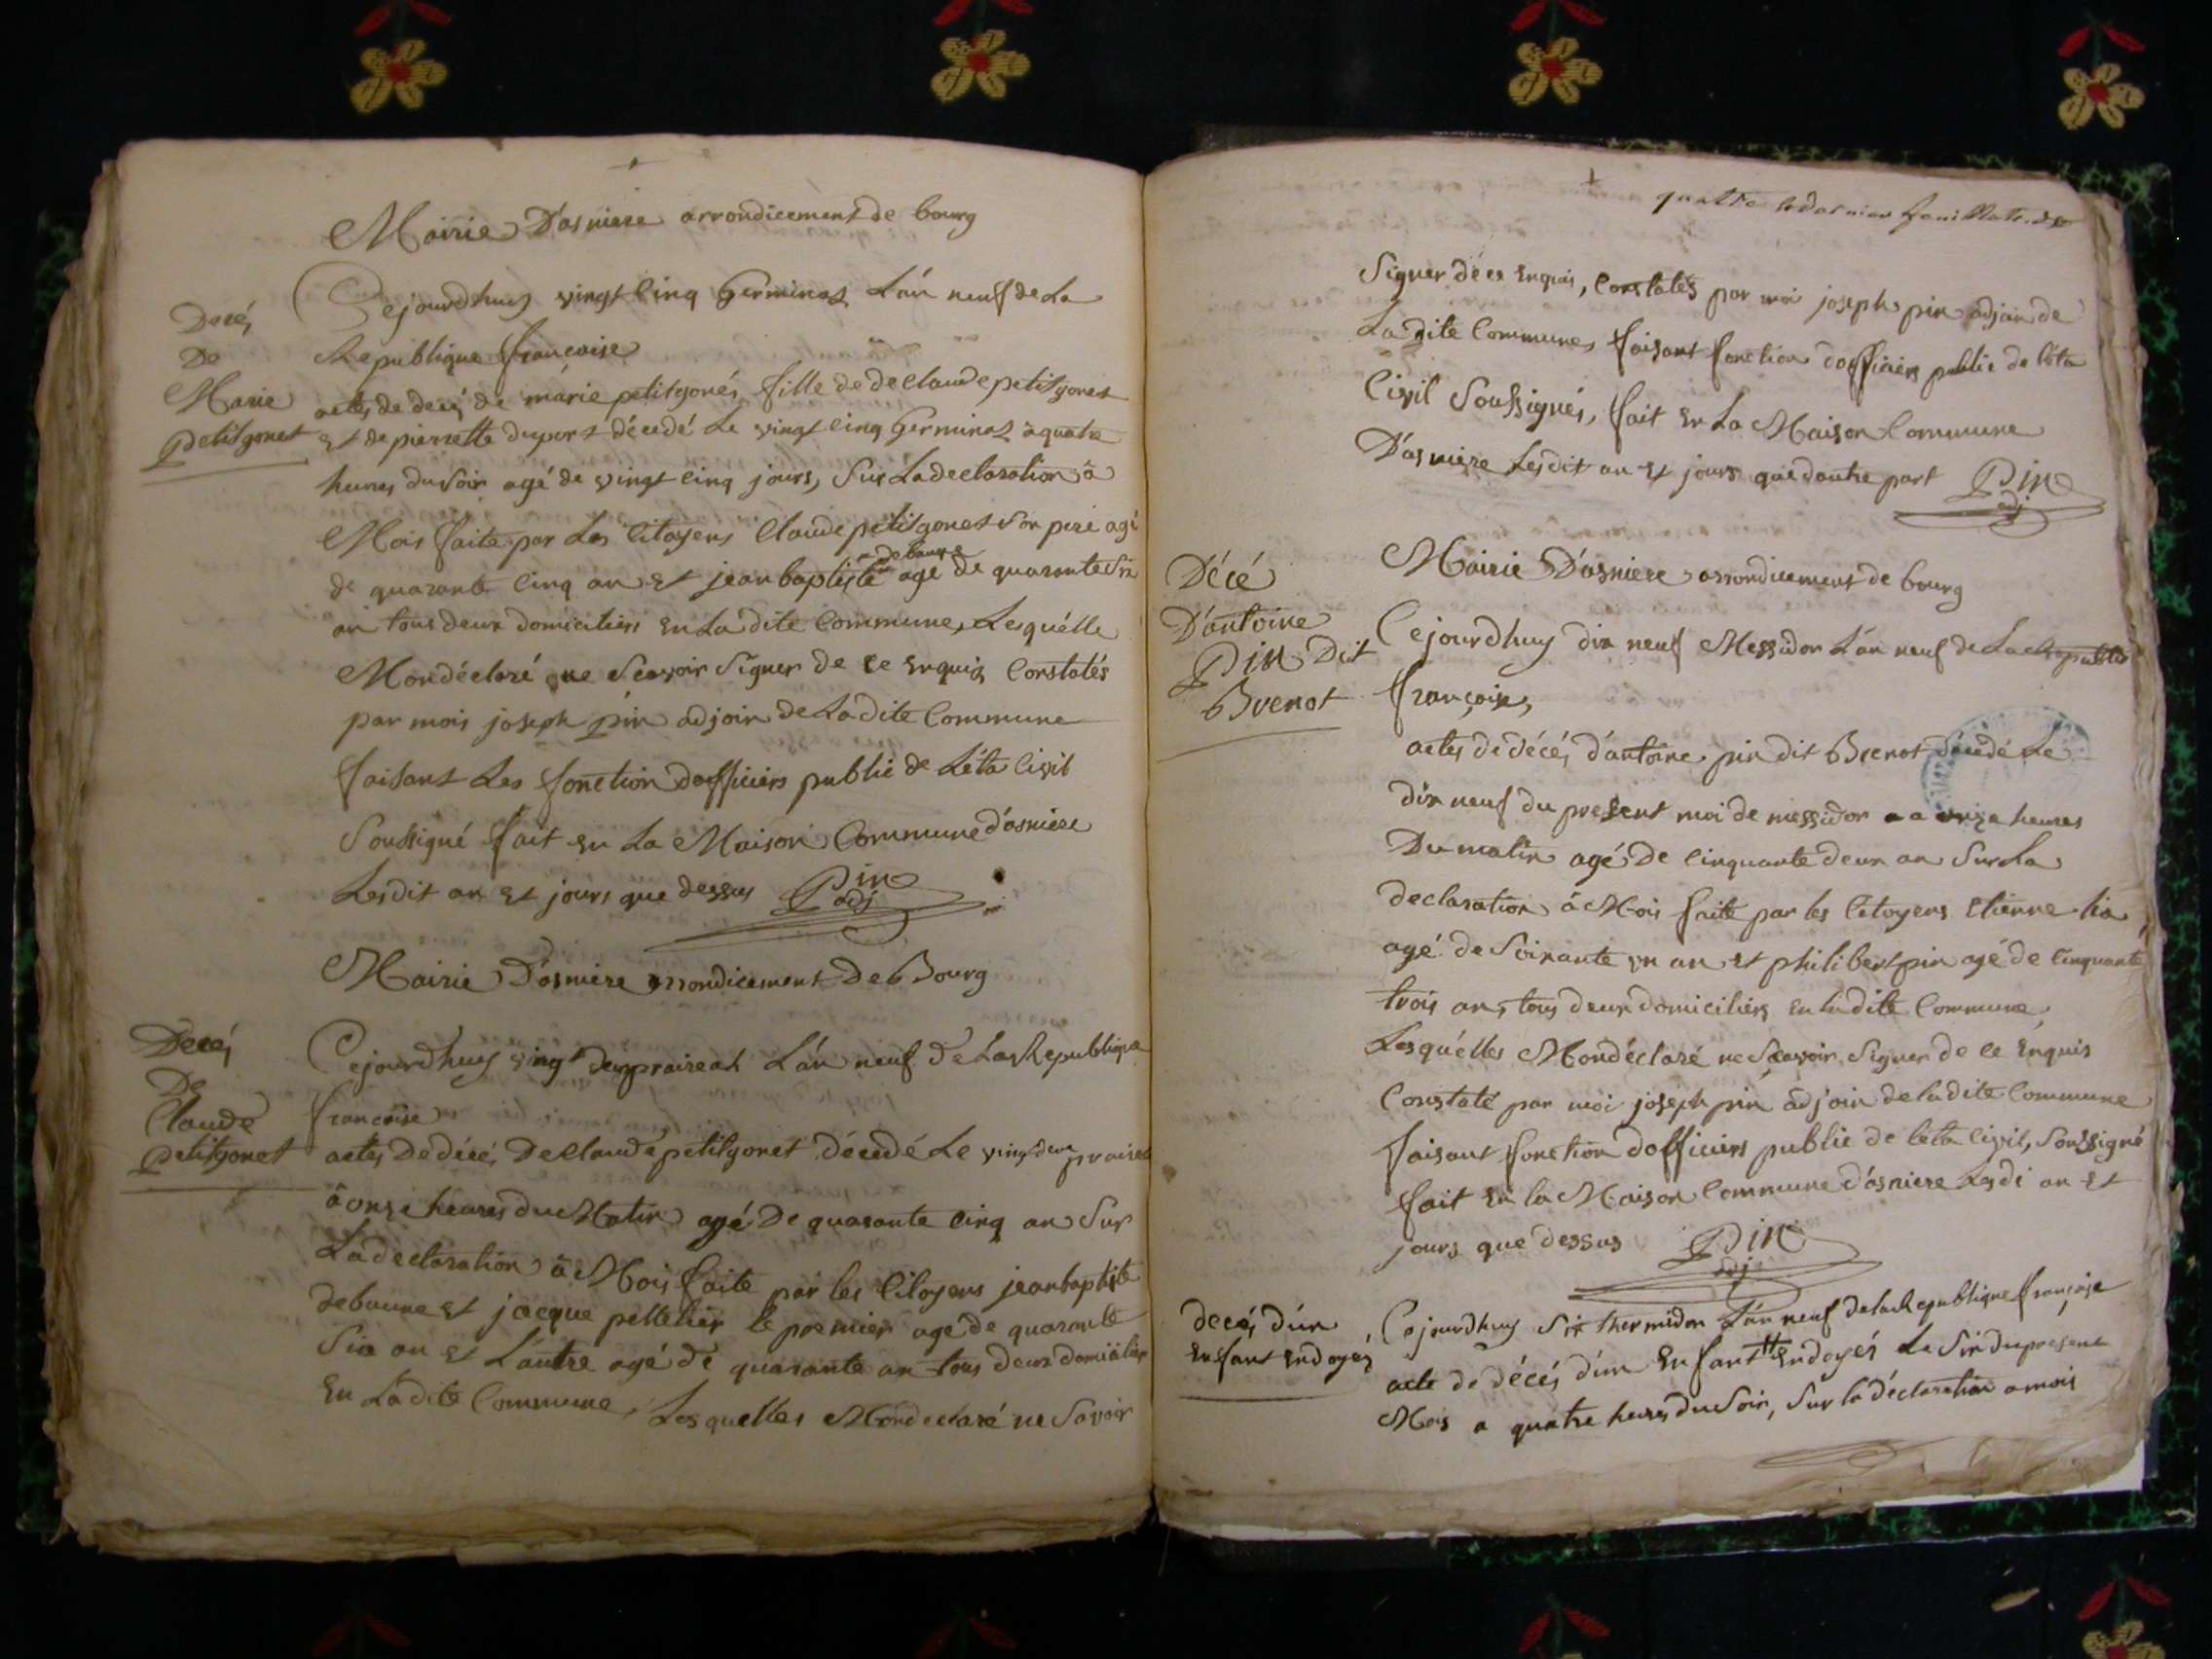 Mairie D'asniere arrondicement de bourg
Decés
De
Marie
petitgonet
Cejourdhuy vingt Cinq Germinal L'án neuf de La
Republique francoise
actes de decés de marie petitgonés fille de de Claude petitgonet
Et de pierrette dupert décedé Le vingt Cinq Germinal à quatre
heures du Soir agé de vingt Cinq jours, Sur La declaration à
Mois faite par Les Citoyens Claude petitgonet Son pere agé
de quarante Cinq an Et jean baptiste debaune agé de quarante Six
an tous deux domiciliers En La dite Commune, Lesquélle
Mondéclaré ne Scavoir Signer de Ce Enquis Constatés
par mois joseph pin adjoin de La dite Commune
faisant Les fonction dofficiers public de L'éta Civil
Soussigné fait En La Maison Commune d'asniere
Lesdit an Et jours que dessus Pin
adj
Mairie D'asniere arrondicement De Bourg
Decés
De
Claude
petitgonet
Cejourdhuy vingt deux praireal L'án neuf de La Republique
francoise
actes De décé De Claude petitgonet décedé Le vingt deux praireal
à onze heures du Matin agé De quarante Cinq an Sur
La declaration à Mois faite par les Citoyens jean baptiste
debaune Et jacque pelletier le premier agé de quarante
Six an Et Lautre agé de quarante an tous deux domicilier
En La dite Commune, Lesquelles Mondeclaré ne Savoir
quattre le dernier feuillate
Signer de ce Enquis, Constatés par moi joseph pin adjoin de
La dite Commune, faisant fonction dofficiers public de léta
Civil Soussignés, fait En La Maison Commune
D'asniere Lesdit an Et jours que dautre part Pin
adj
Mairie D'asniere arrondicement de bourg
Décé
D'antoine
Pin Dit
Brenot
Cejourdhuy dix neuf Messidor L'án neuf de La Republis
françoise,
actes de décés, d'antoine pin dit Brenot décedé Le
dix neuf du present moi de messidor a a onze heures
Du matin agé De Cinquante deux an Sur La
declaration à Mois faite par les Citoyens Etienne
agé de Soixante un an Et philibert pin agé de Cinquante
trois an, tous deux domiciliers En La dite Commune,
Lesquélles Mondéclaré ne Scavoir Signer de Ce Enquis
Constaté par moi joseph pin adjoin de ladite Commune
faisant fonction dofficiers public de leta Civil, Soussigné
fait En la Maison Commune d'asniere Lesdi an Et
jours que dessus Pin
adj
decés d'un
Enfant Endoyez
Cejourdhuy Six thermidor L'án neuf de la Republique françoise
acte de décés d'un Enfant Endoyés Le Six du present
Mois a quatre heures du Soir, Sur la déclaration a mois